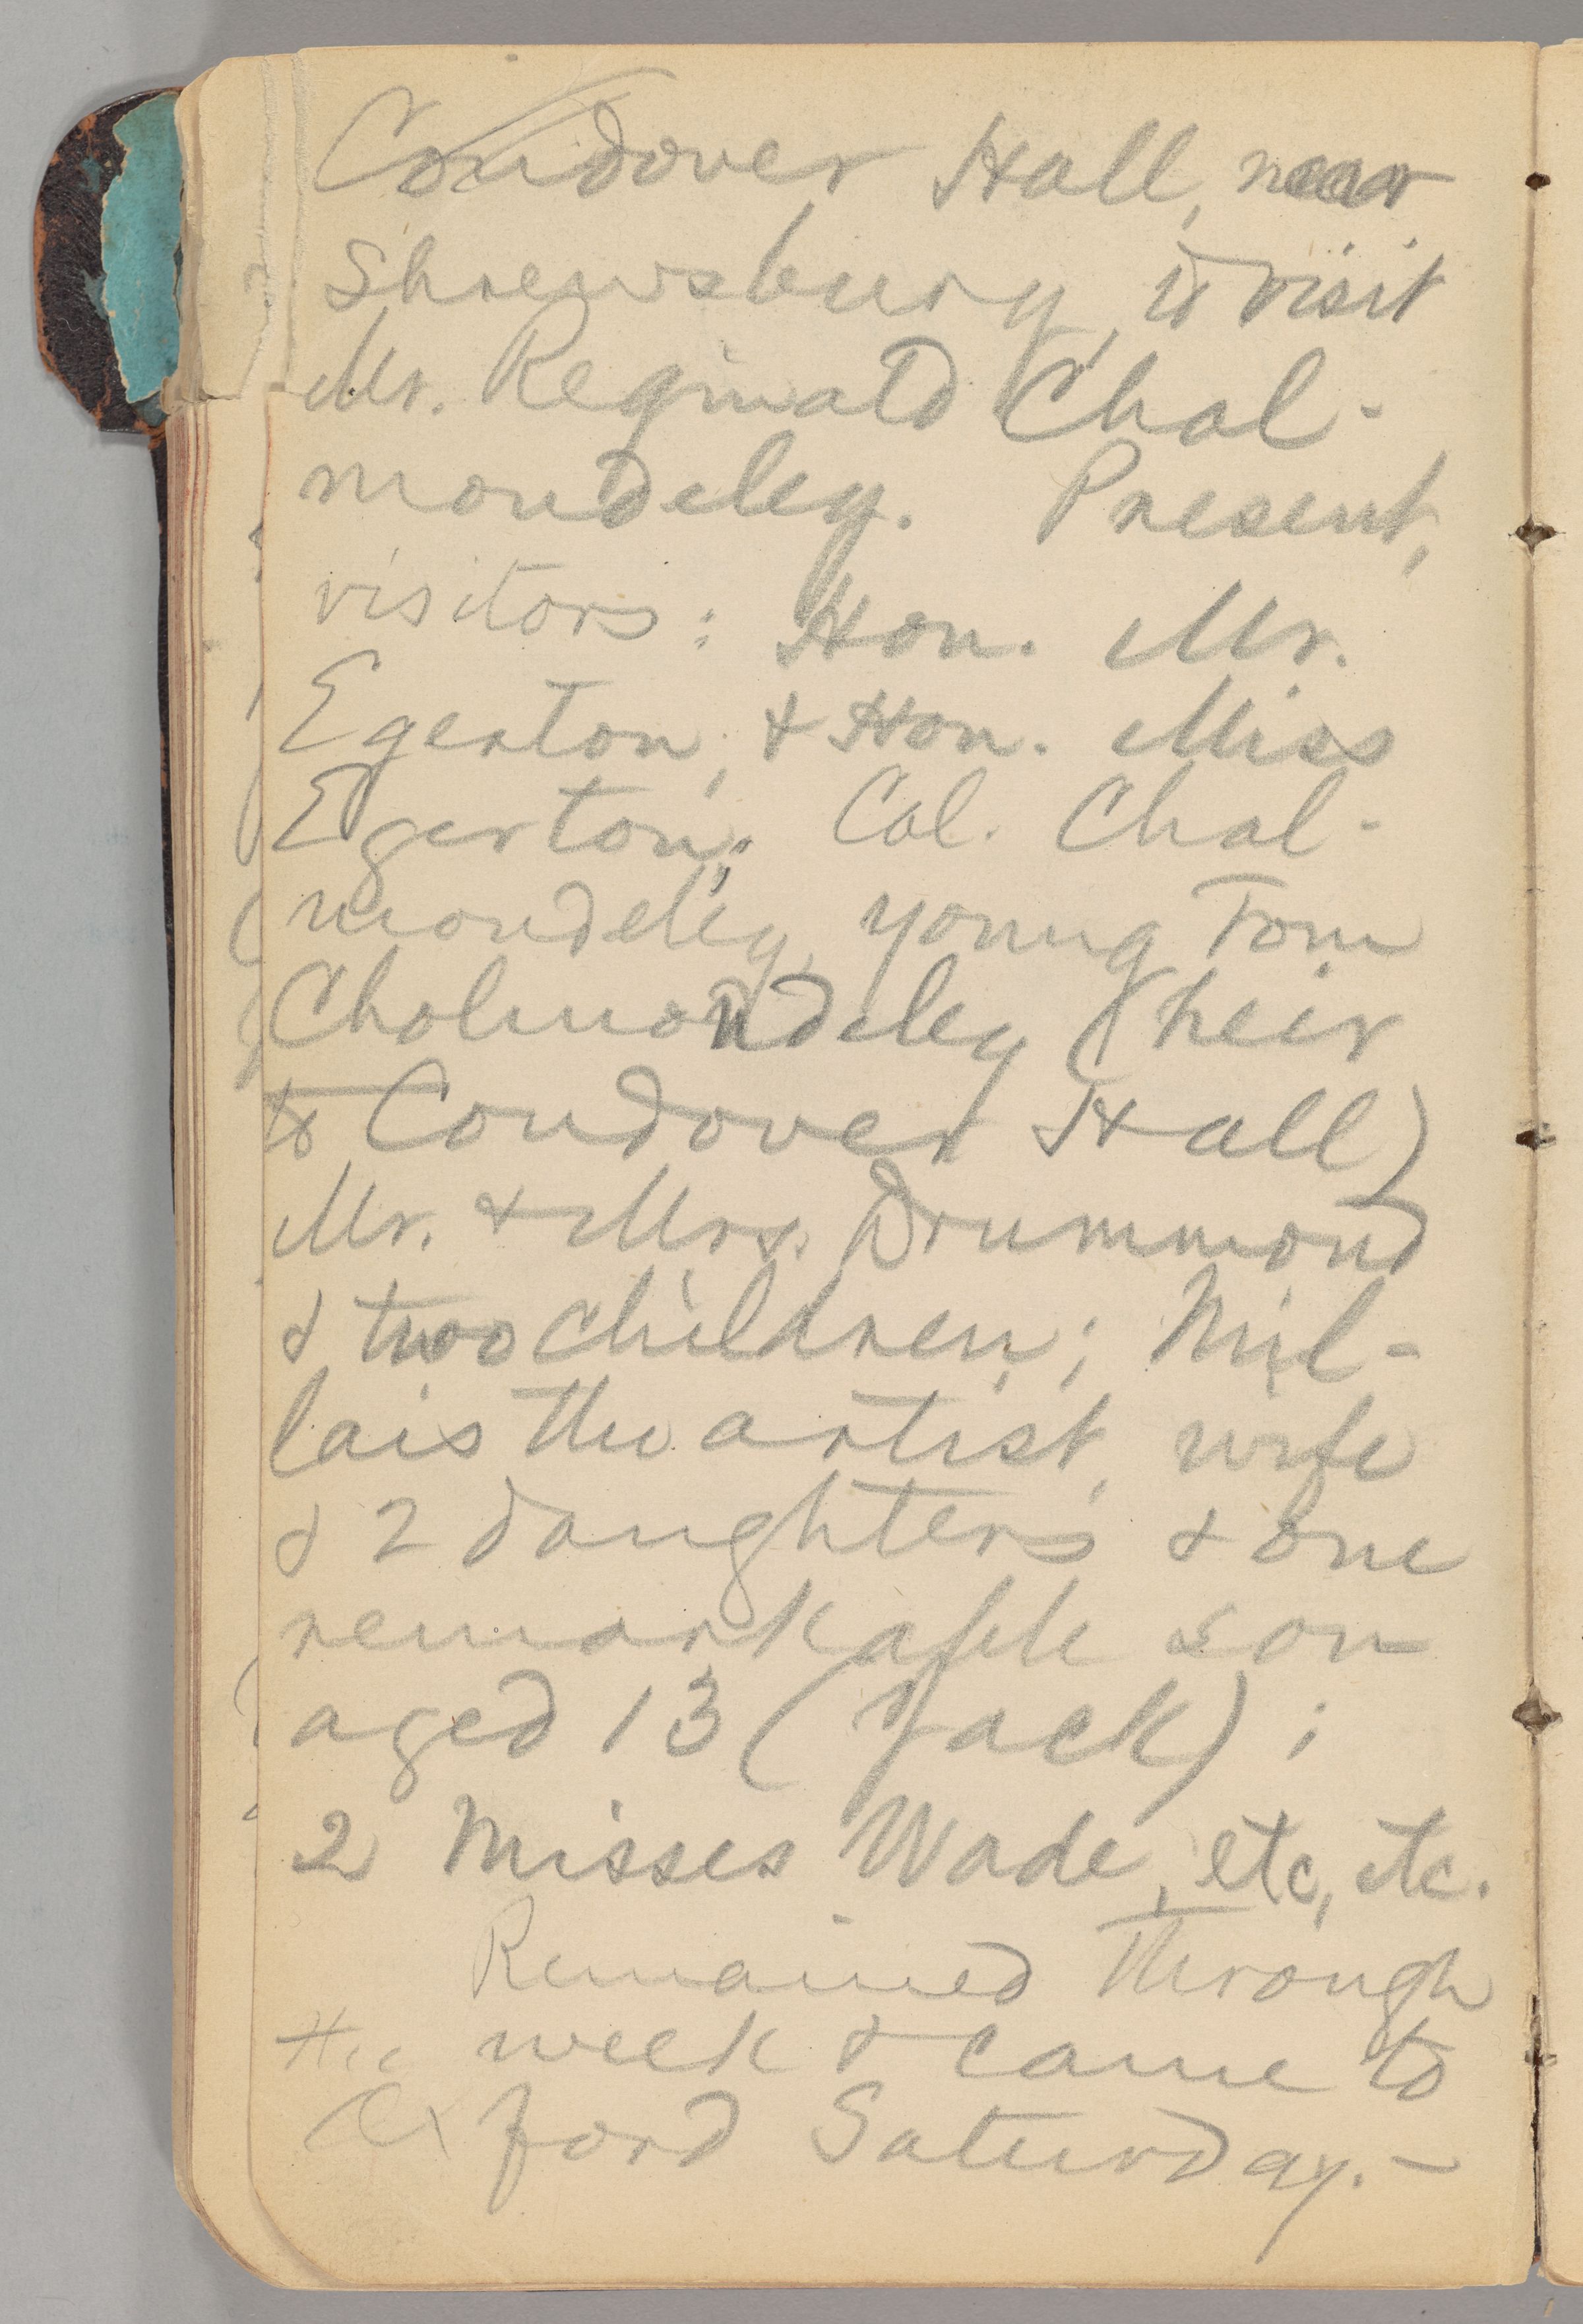 Condover Hall, near
Shrewsbury, to visit
Mr. Reginald Chol-
mondeley. Present,
visitors: Hon. Mr.
Egerton, & Hon. Miss
Egerton; Col. Chol-
mondeley, young Tom
Cholmondeley (heir
to Condover Hall)
Mr. & Mrs. Drummond
& two children; Mil-
lais the artist, wife
& 2 daughters & one
remarkable son
aged 13 (Jack);
2 Misses Wade, etc, etc.
Remained through
the week & came to
Oxford Saturday. —